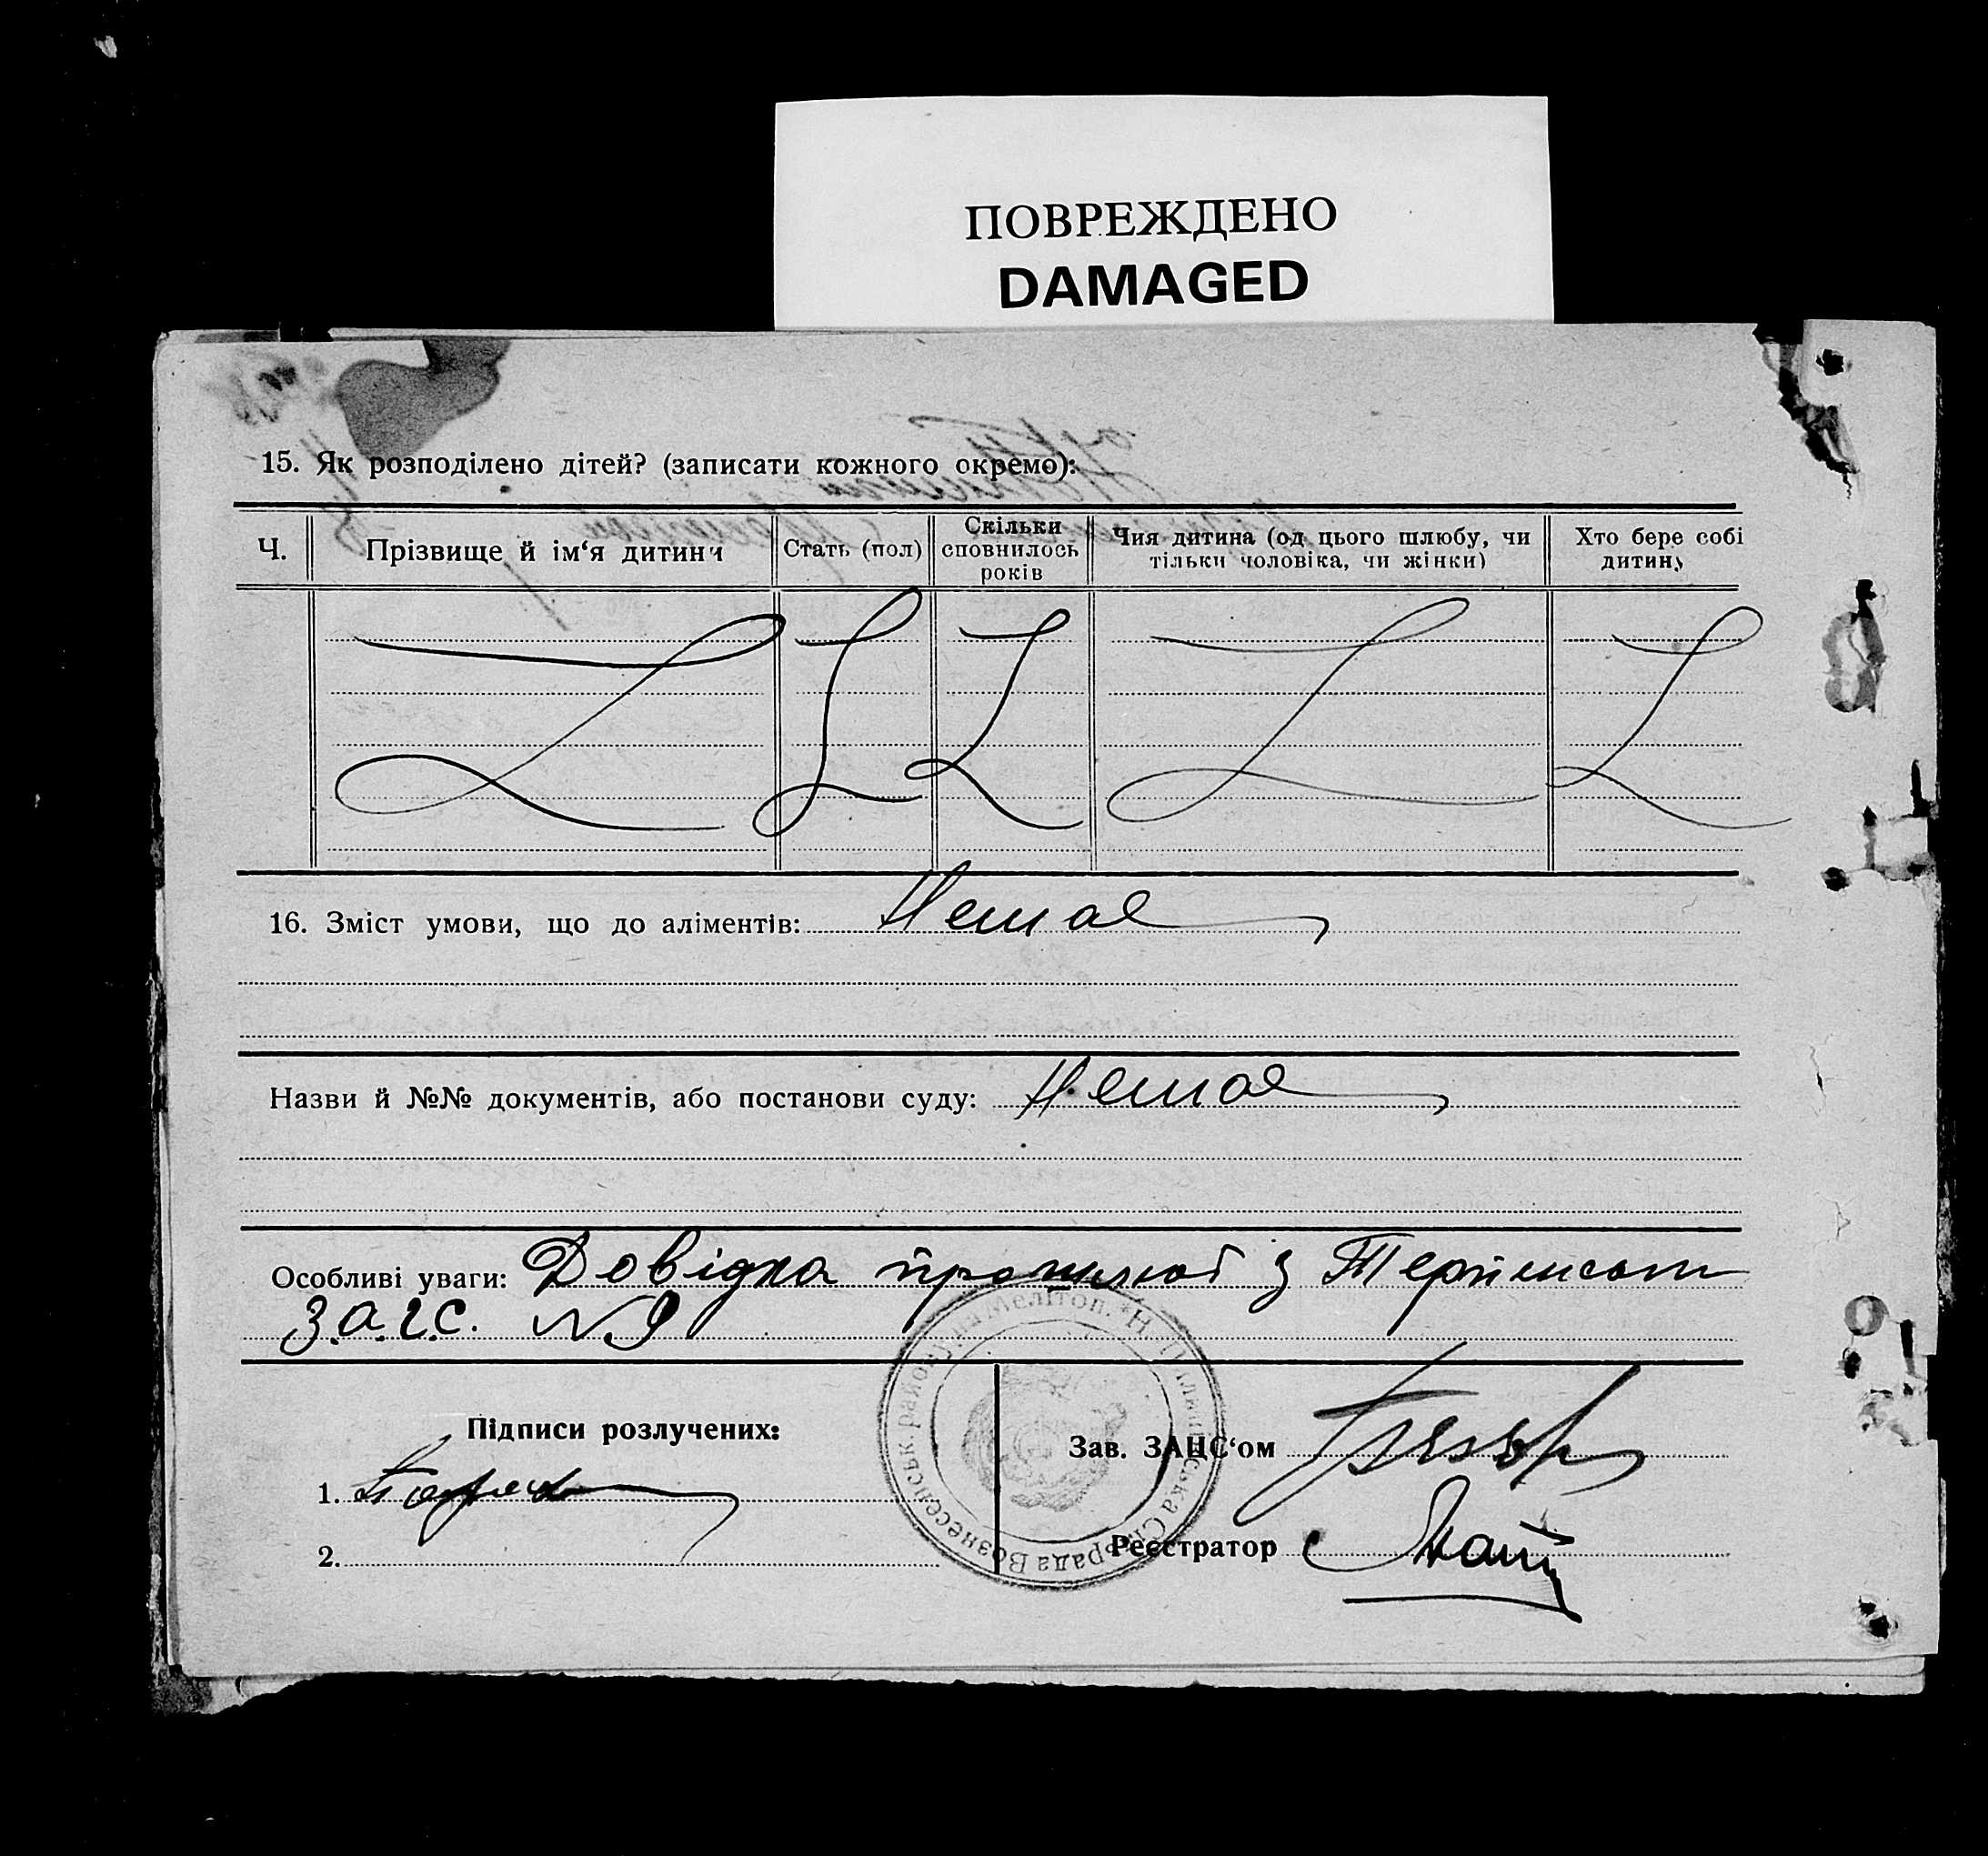 ПОВРЕЖДЕНО
DAMAGED
15. Як розподілено дітей? (записати кожного окремо):
Ч.
Прізвище й ім‘я дитини
Стать (пол)
Скільки
сповнилось
років
Чия дитина (од цього шлюбу, чи
тільки чоловіка, чи жінки)
Хто бере собі
дитину
16. Зміст умови, що до аліментів: Немає
Назви й №№ документів, або постанови суду: Немає
Особливі уваги: Довідка з
З.А.Г.С. N 9
Підписи розлучених:
1.
2.
Зав. ЗАЦС‘ом
Реєстратор
Вознесенськ. району на Мелітоп.